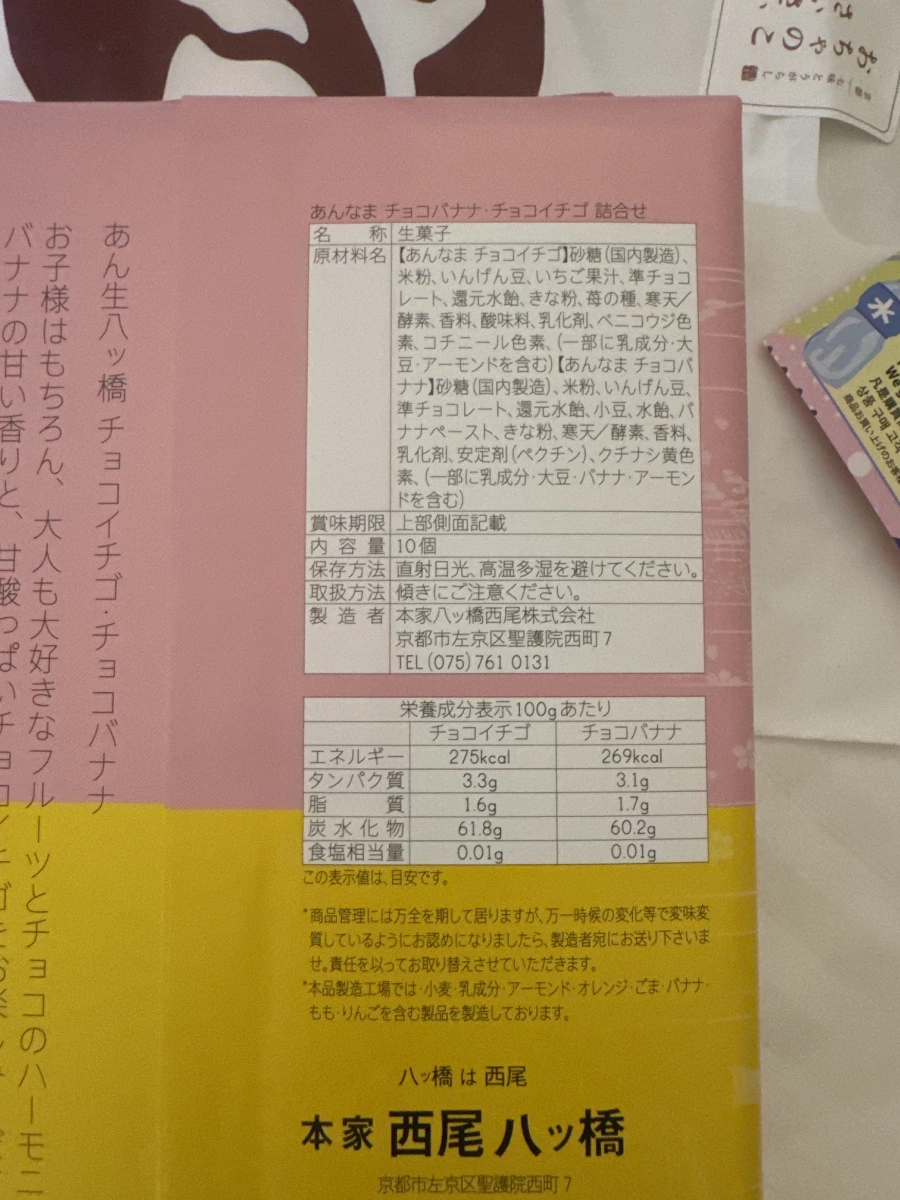 あんなま チョコバナナ・チョコイチゴ 詰合せ
名称 生菓子
原材料名 【あんなま チョコイチゴ】砂糖(国内製造)、
米粉、いんげん豆、いちご果汁、準チョコ
レート、還元水飴、きな粉、苺の種、寒天/
酵素、香料、酸味料、乳化剤、ベニコウジ色
素、コチニール色素、(一部に乳成分・大
豆・アーモンドを含む)【あんなま チョコバ
ナナ】砂糖(国内製造)、米粉、いんげん豆、
準チョコレート、還元水飴、小豆、水飴、バ
ナナペースト、きな粉、寒天/酵素、香料、
乳化剤、安定剤(ペクチン)、クチナシ黄色
素、(一部に乳成分・大豆・バナナ・アーモン
ドを含む)
賞味期限 上部側面記載
内容量 10個
保存方法 直射日光、高温多湿を避けてください。
取扱方法 傾きにご注意ください。
製造者 本家八ッ橋西尾株式会社
京都市左京区聖護院西町7
TEL(075)761 0131
栄養成分表示100gあたり
チョコイチゴ チョコバナナ
エネルギー 275kcal 269kcal
タンパク質 3.3g 3.1g
脂質 1.6g 1.7g
炭水化物 61.8g 60.2g
食塩相当量 0.01g 0.01g
この表示値は、目安です。
*商品管理には万全を期して居りますが、万一時候の変化等で変味変
質しているようにお認めになりましたら、製造者宛にお送り下さいま
せ。責任を以ってお取り替えさせていただきます。
*本品製造工場では・小麦・乳成分・アーモンド・オレンジ・ごま・バナナ・
もも・りんごを含む製品を製造しております。
八ッ橋は西尾
本家西尾八ッ橋
京都市左京区聖護院西町7
あん生八ッ橋 チョコイチゴ・チョコバナナ
お子様はもちろん、大人も大好きなフルーツとチョコのハーモニ
バナナの甘い香りと、甘酸っぱいチョコイチゴをお楽
おちゃのこ
さいさい
京都 七味とうがらし
米
We
상품 구매 고객
商品お買い上げのお客